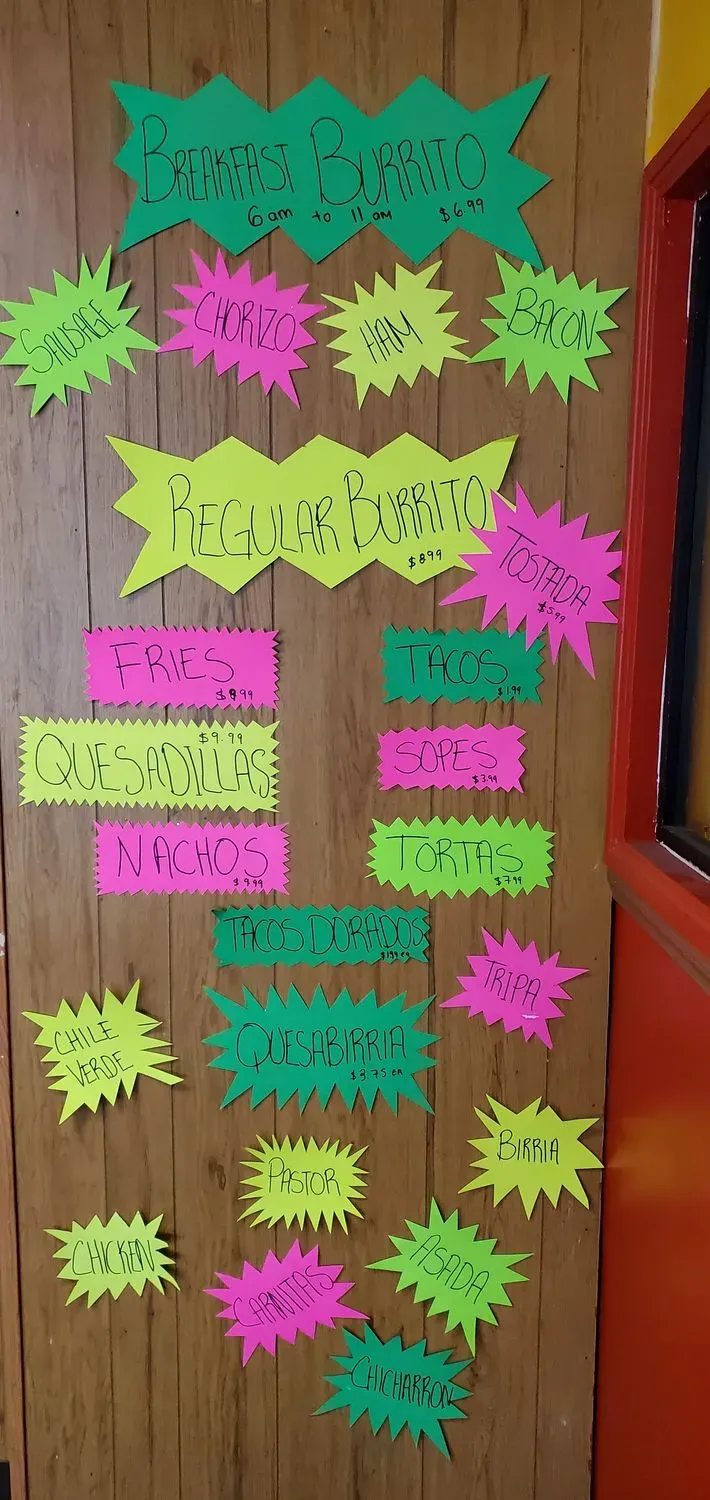 BREAKFAST BURRITO
6 am to 11 am $6.99
SAUSAGE
CHORIZO
HAM
BACON
REGULAR BURRITO
$8.99
TOSTADA
$5.99
FRIES
$9.99
TACOS
$1.99
$9.99
QUESADILLAS
SOPES
$3.99
NACHOS
$9.99
TORTAS
$7.99
TACOS DORADOS
$1.99 ea
TRIPA
CHILE
VERDE
QUESABIRRIA
$3.75 ea
BIRRIA
PASTOR
CHICKEN
ASADA
CARNITAS
CHICHARRON